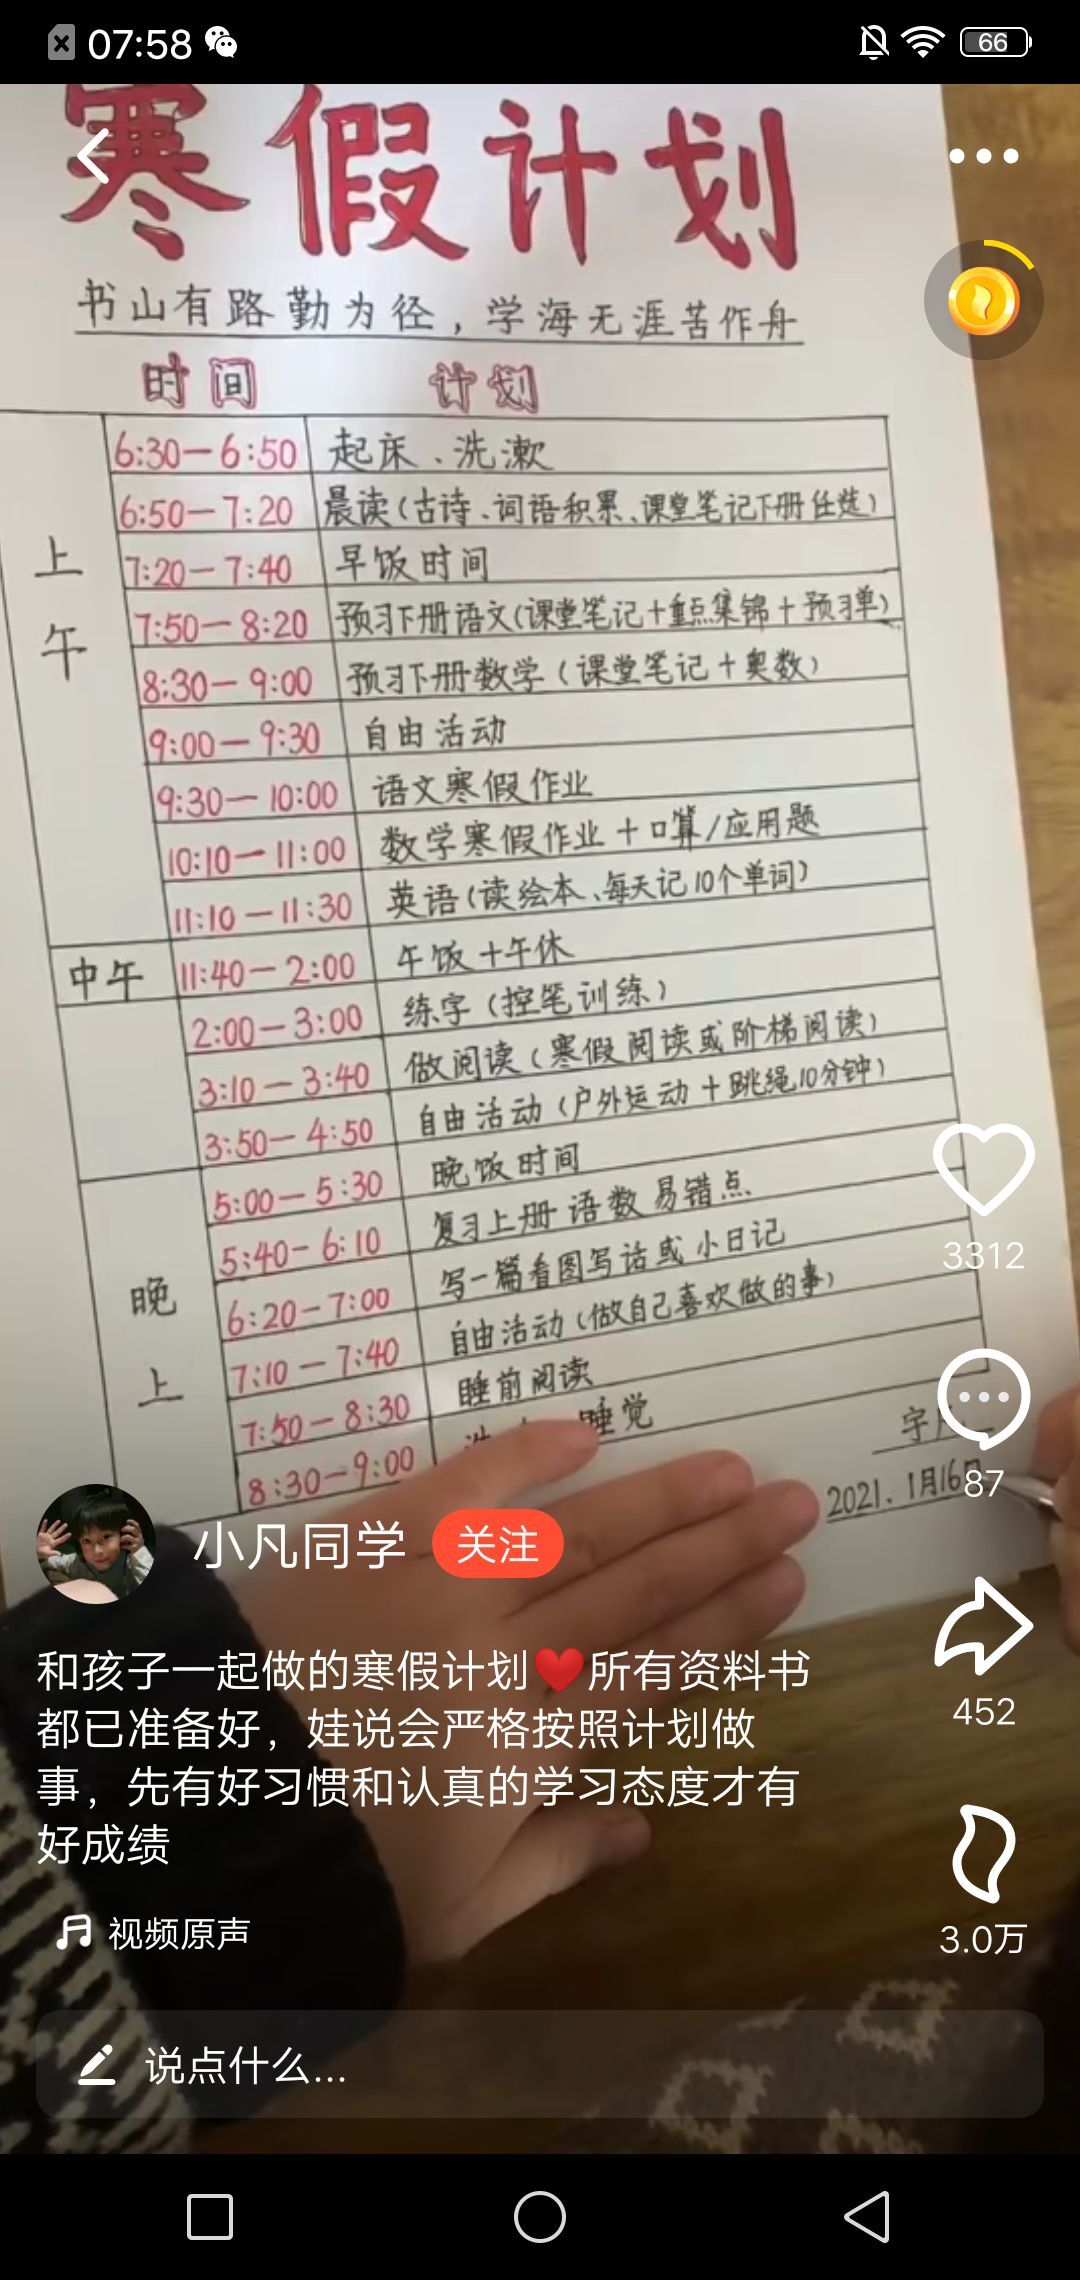 07:58
66
寒假计划
书山有路勤为径，学海无涯苦作舟
时间 计划
上午
6:30—6:50 起床、洗漱
6:50—7:20 晨读(古诗、词语积累、课堂笔记下册任选)
7:20—7:40 早饭时间
7:50—8:20 预习下册语文(课堂笔记+重点集锦+预习单)
8:30—9:00 预习下册数学(课堂笔记+奥数)
9:00—9:30 自由活动
9:30—10:00 语文寒假作业
10:10—11:00 数学寒假作业+口算/应用题
11:10—11:30 英语(读绘本、每天记10个单词)
中午 11:40—2:00 午饭+午休
2:00—3:00 练字(控笔训练)
3:10—3:40 做阅读(寒假阅读或阶梯阅读)
3:50—4:50 自由活动(户外运动+跳绳10分钟)
晚上
5:00—5:30 晚饭时间
5:40-6:10 复习上册语数易错点
6:20-7:00 写一篇看图写话或小日记
7:10—7:40 自由活动(做自己喜欢做的事)
7:50-8:30 睡前阅读
8:30-9:00 睡觉
2021.1月16日
3312
87
小凡同学 关注
452
和孩子一起做的寒假计划❤️所有资料书
都已准备好，娃说会严格按照计划做
事，先有好习惯和认真的学习态度才有
好成绩
3.0万
视频原声
说点什么...